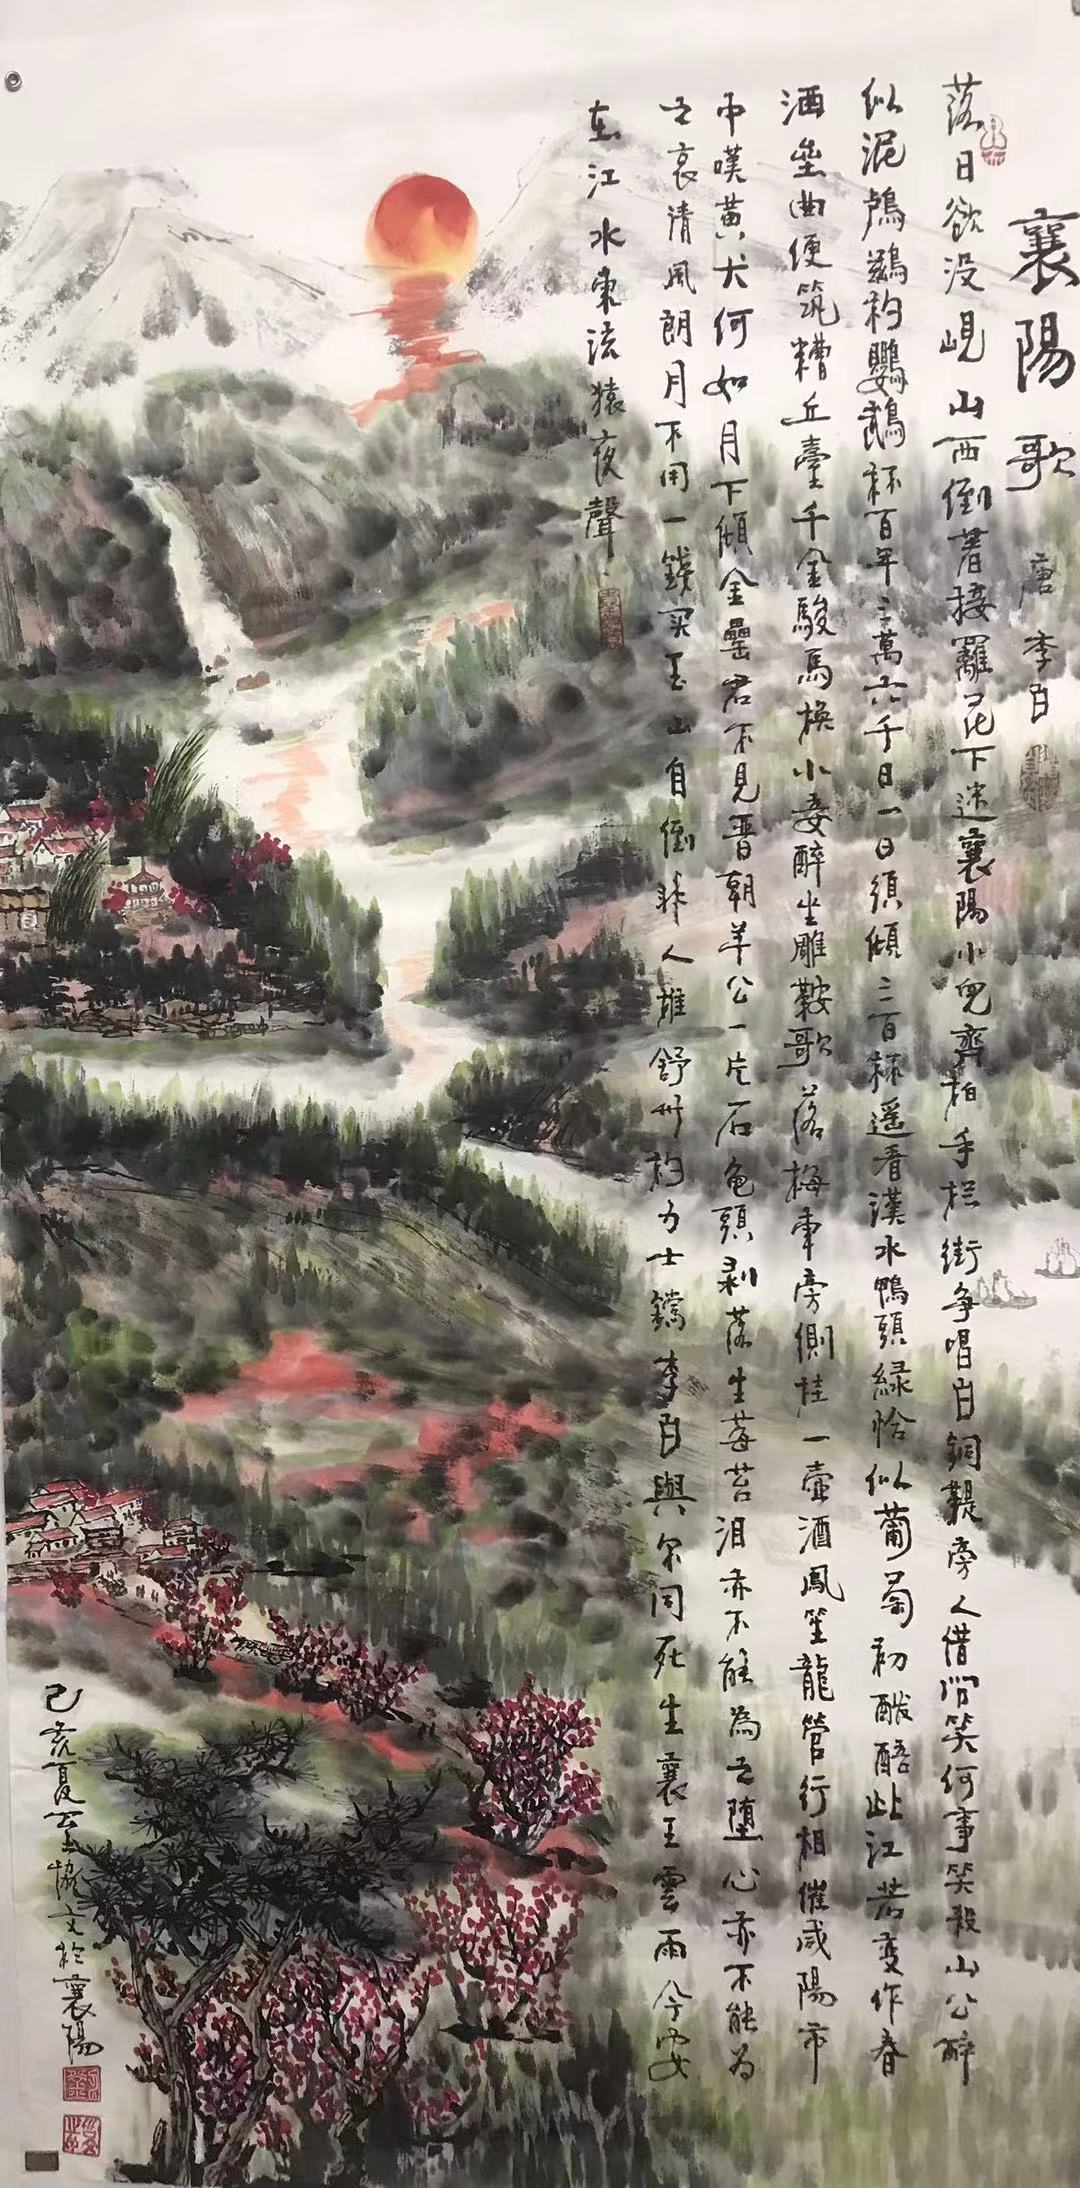 襄陽歌
唐 李白
落日欲没峴山西倒著接䍦花下迷襄陽小兒齊拍手拦街争唱白銅鞮旁人借問笑何事笑殺山公醉
似泥鸕鷀杓鸚鵡杯百年三萬六千日一日須傾三百杯遥看漢水鴨頭緑恰似葡萄初醱醅此江若变作春
酒壘曲便筑糟丘臺千金駿馬换小妾醉坐雕鞍歌落梅車旁側挂一壺酒鳳笙龍管行相催咸陽市
中嘆黄犬何如月下傾金罍君不見晋朝羊公一片石龟頭剥落生莓苔泪亦不能為之堕心亦不能为
之哀清風朗月不用一錢买玉山自倒非人推舒州杓力士鐺李白與尔同死生襄王雲雨今安
在江水東流猿夜聲
己亥夏 於襄陽